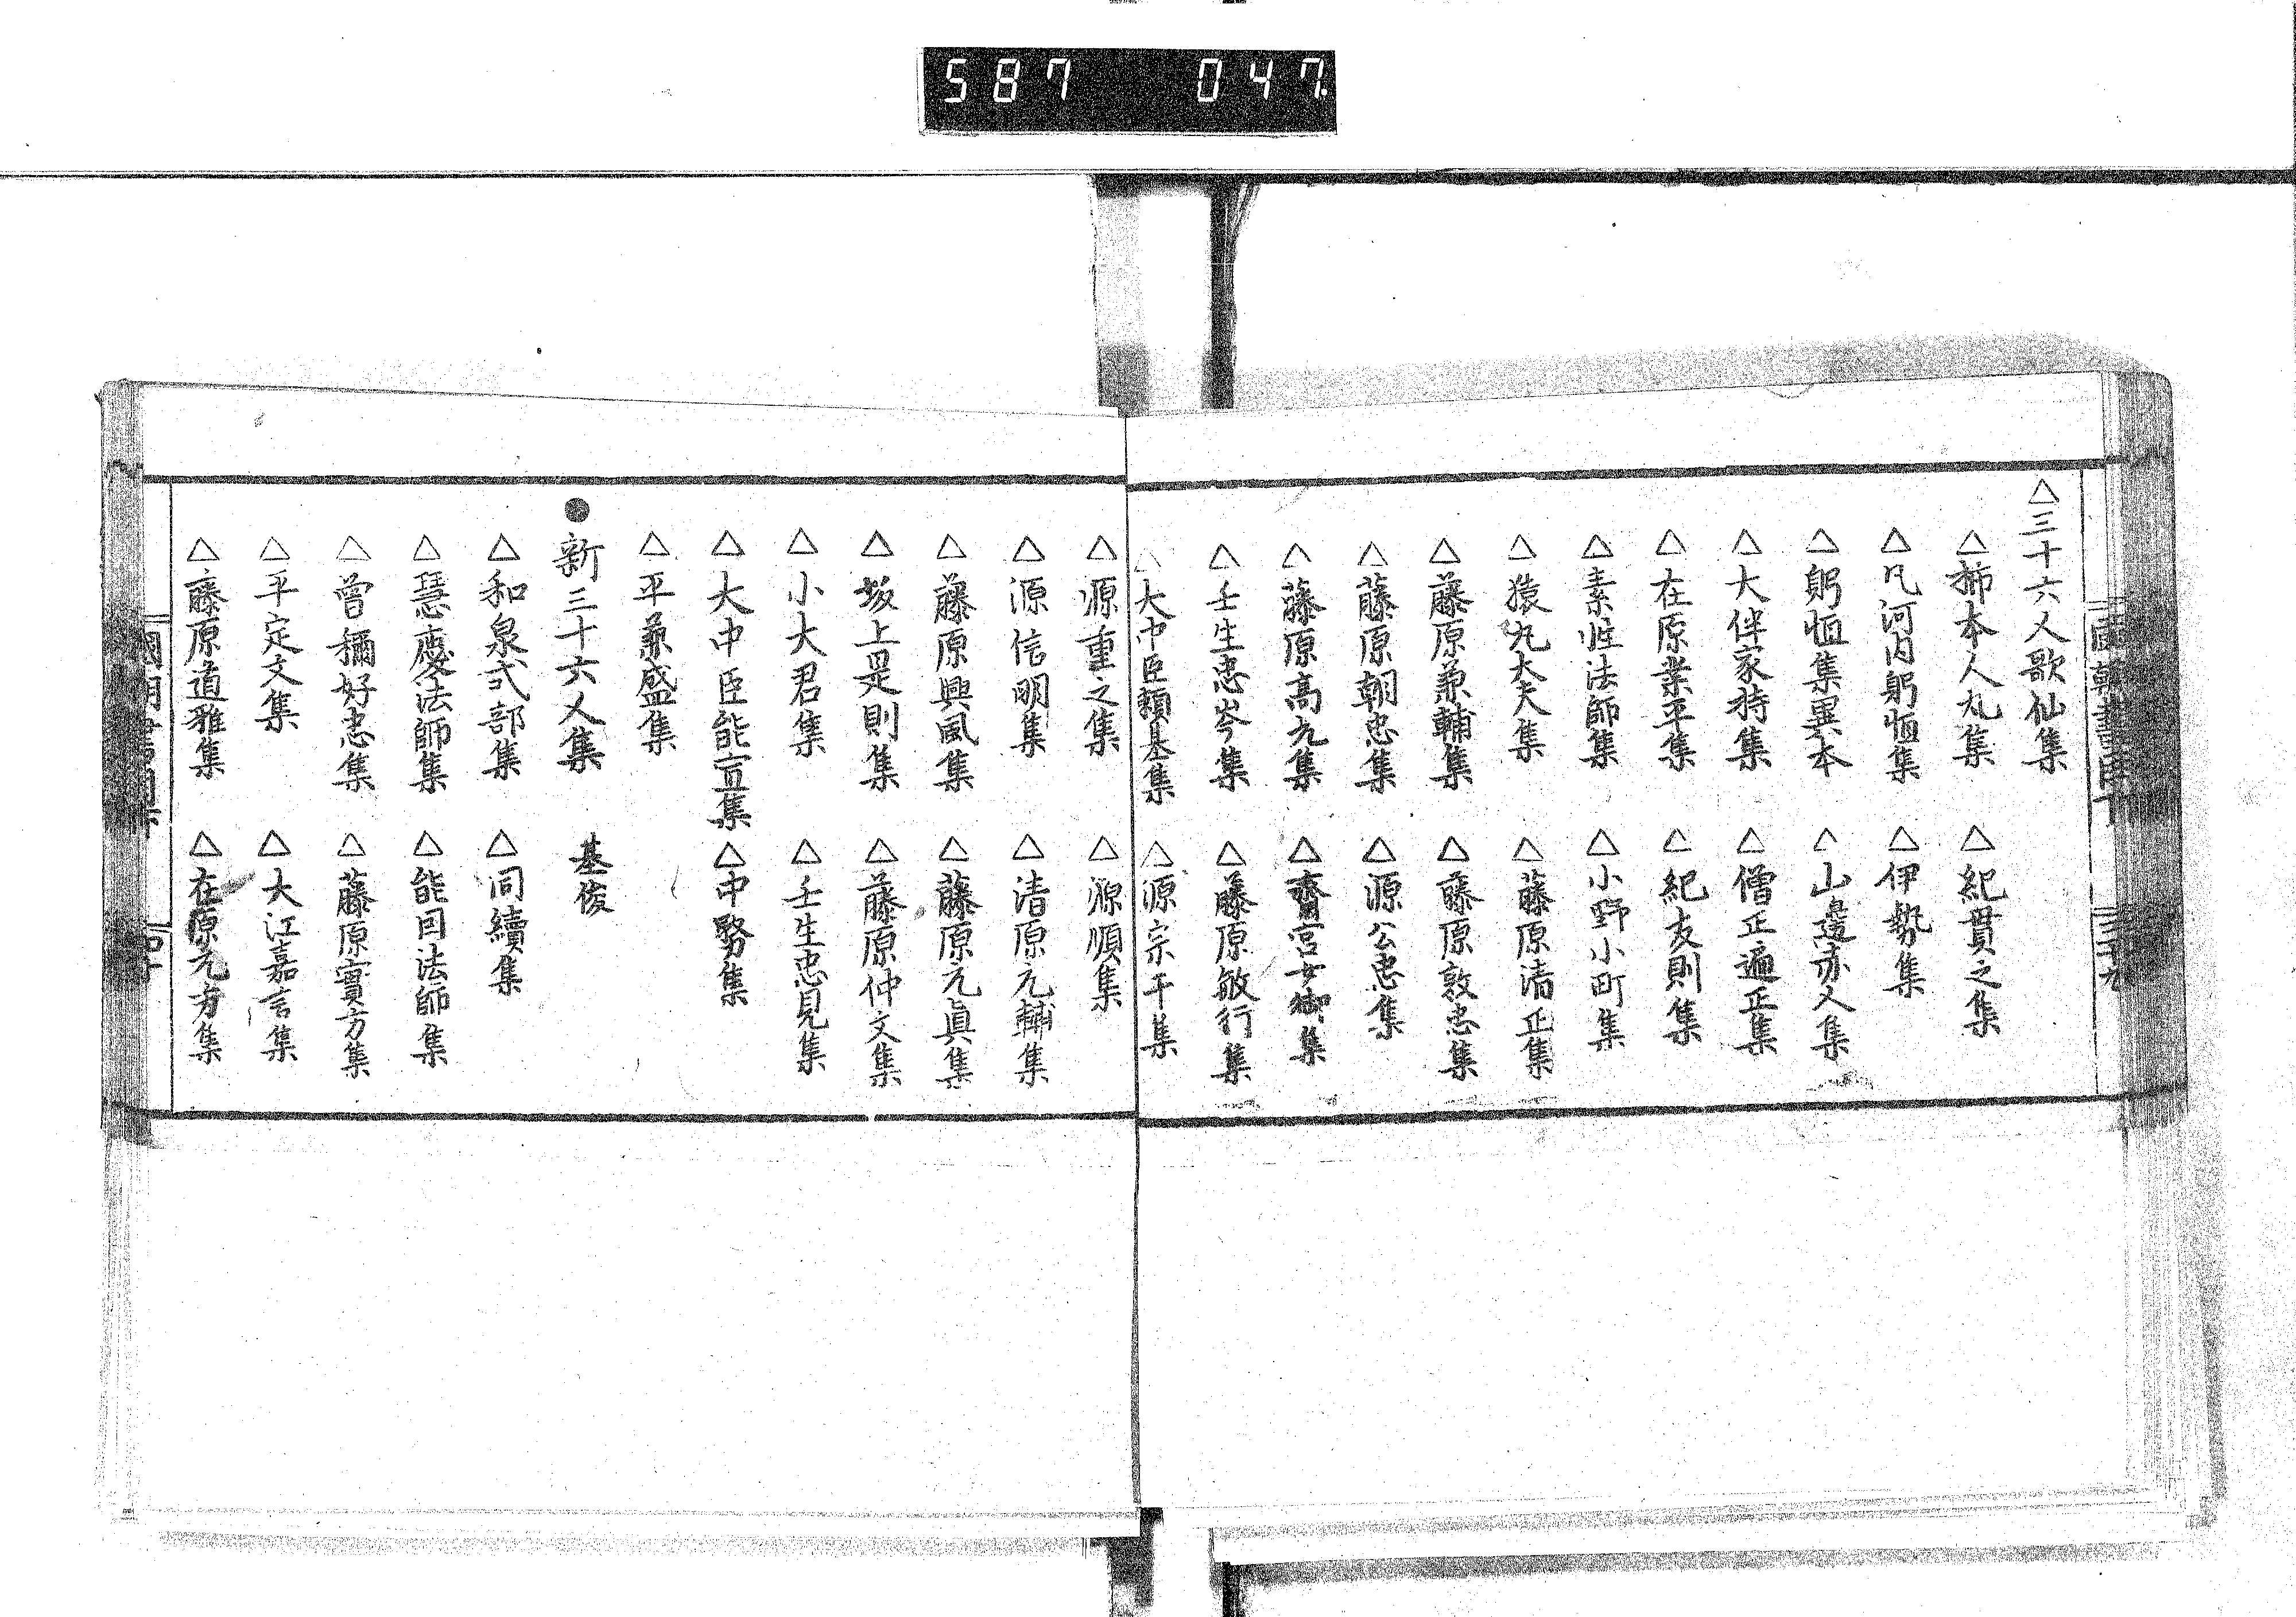 587 047
△三十六人歌仙集
△柿本人丸集 △紀貫之集
△凡河内躬恒集 △伊勢集
△躬恒集異本 △山邊赤人集
△大伴家持集 △僧正遍正集
△在原業平集 △紀友則集
△素性法師集 △小野小町集
△猿丸大夫集 △藤原清正集
△藤原兼輔集 △藤原敦忠集
△藤原朝忠集 △源公忠集
△藤原高光集 △齋宮女御集
△壬生忠岑集 △藤原敏行集
△大中臣頼基集 △源宗于集
△源重之集 △源順集
△源信明集 △清原元輔集
△藤原興風集 △藤原元眞集
△坂上是則集 △藤原仲文集
△小大君集 △壬生忠見集
△大中臣能宣集 △中務集
△平兼盛集
●新三十六人集 基俊
△和泉式部集 △同續集
△慧慶法師集 △能因法師集
△曾禰好忠集 △藤原實方集
△平定文集 △大江嘉言集
△藤原道雅集 △在原元方集